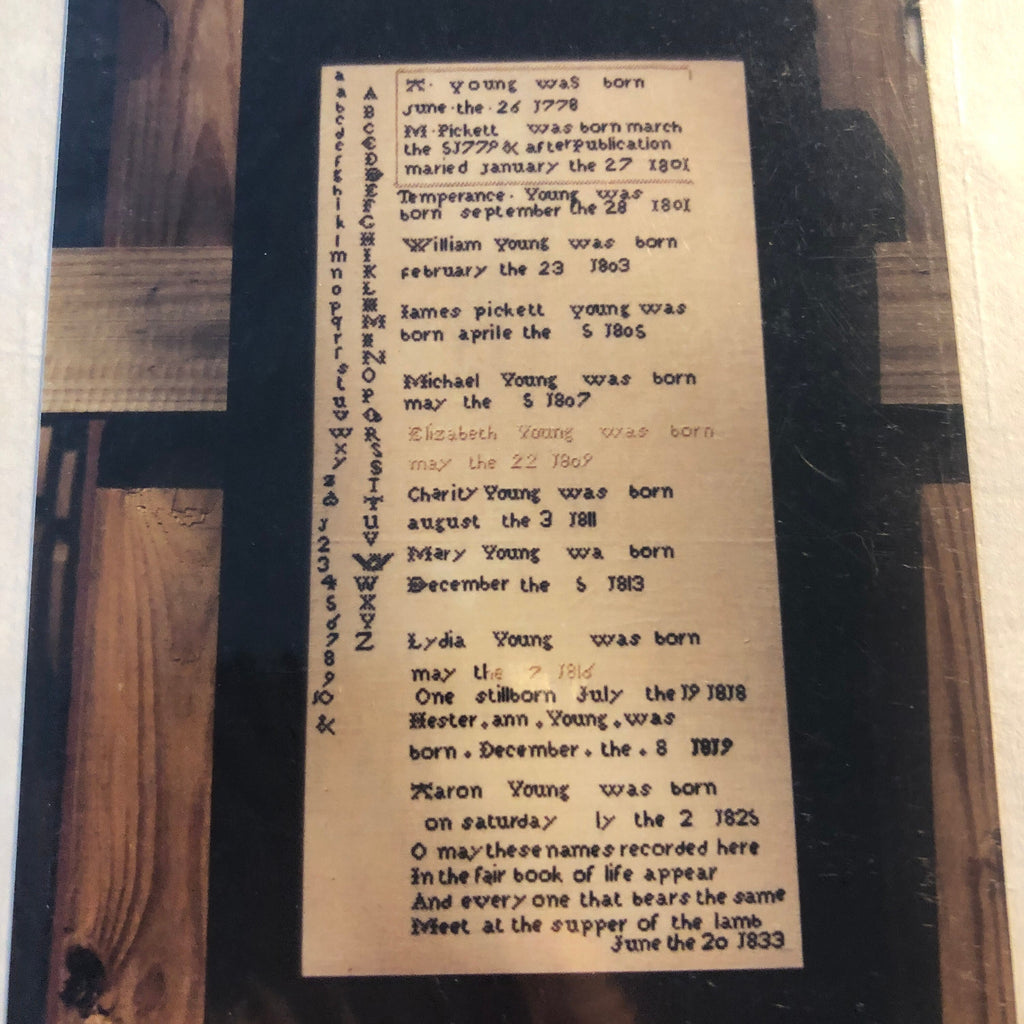 a
a
b
c
d
e
f
g
h
i
k
l
m
n
o
p
q
r
ſ
s
t
u
v
w
x
y
z
&
J
2
3
4
5
6
7
8
9
10
&
A
B
C
D
E
F
G
H
I
K
L
M
N
O
P
Q
R
S
S
T
U
V
W
W
X
Y
Z
A. Young was born
June.the.26 J778
M.Pickett was born march
the 5J779 & after publication
maried January the 27 1801
Temperance. Young was
born september the 28 1801
William Young was born
february the 23 J803
Iames pickett young was
born aprile the 5 J805
Michael Young was born
may the 5 J807
Elizabeth Young was born
may the 22 J809
Charity Young was born
august the 3 J811
Mary Young wa born
December the 5 J813
Lydia Young was born
may the 7 J816
One stillborn July the J9 J8J8
Hester.ann.Young.was
born.December.the.8 J8J9
Aaron Young was born
on saturday ly the 2 J825
O may these names recorded here
In the fair book of life appear
And every one that bears the same
Meet at the supper of the lamb
June the 20 J833